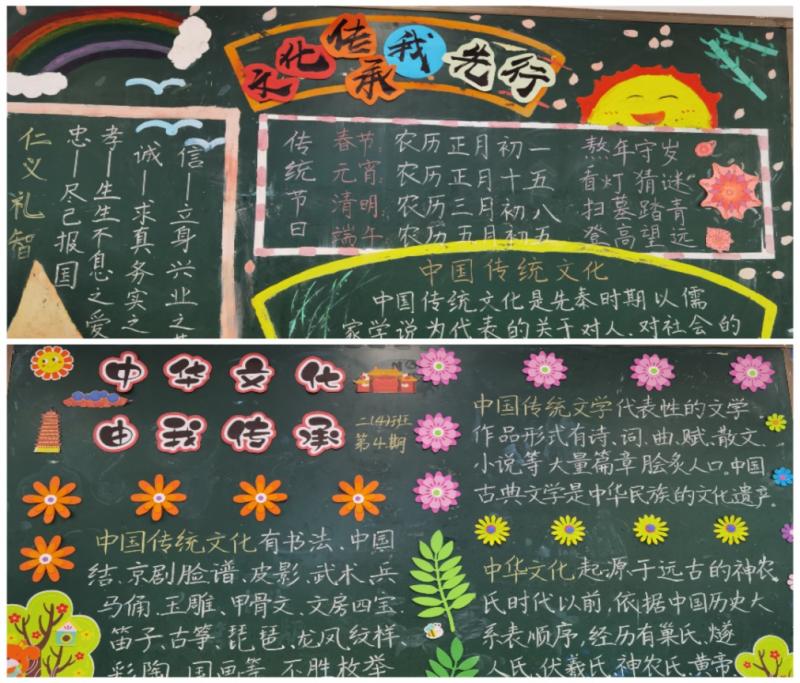 文化传承我先行
仁义礼智
忠—尽己报国
孝—生生不息之爱
诚—求真务实之
信—立身兴业之
传统节日
春节 农历正月初一 熬年守岁
元宵 农历正月十五 看灯猜谜
清明 农历三月初八 扫墓踏青
端午 农历五月初五 登高望远
中国传统文化
中国传统文化是先秦时期以儒
家学说为代表的关于对人、对社会的
中华文化
由我传承
二(4)班
第4期
中国传统文化有书法、中国
结、京剧脸谱、皮影、武术、兵
马俑、玉雕、甲骨文、文房四宝、
笛子、古筝、琵琶、龙凤纹样、
彩陶、国画等,不胜枚举
中国传统文学代表性的文学
作品形式有诗、词、曲、赋、散文、
小说等大量篇章脍炙人口,中国
古典文学是中华民族的文化遗产。
中华文化起源于远古的神农
氏时代以前,依据中国历史大
系表顺序,经历有巢氏、燧
人氏、伏羲氏、神农氏、黄帝